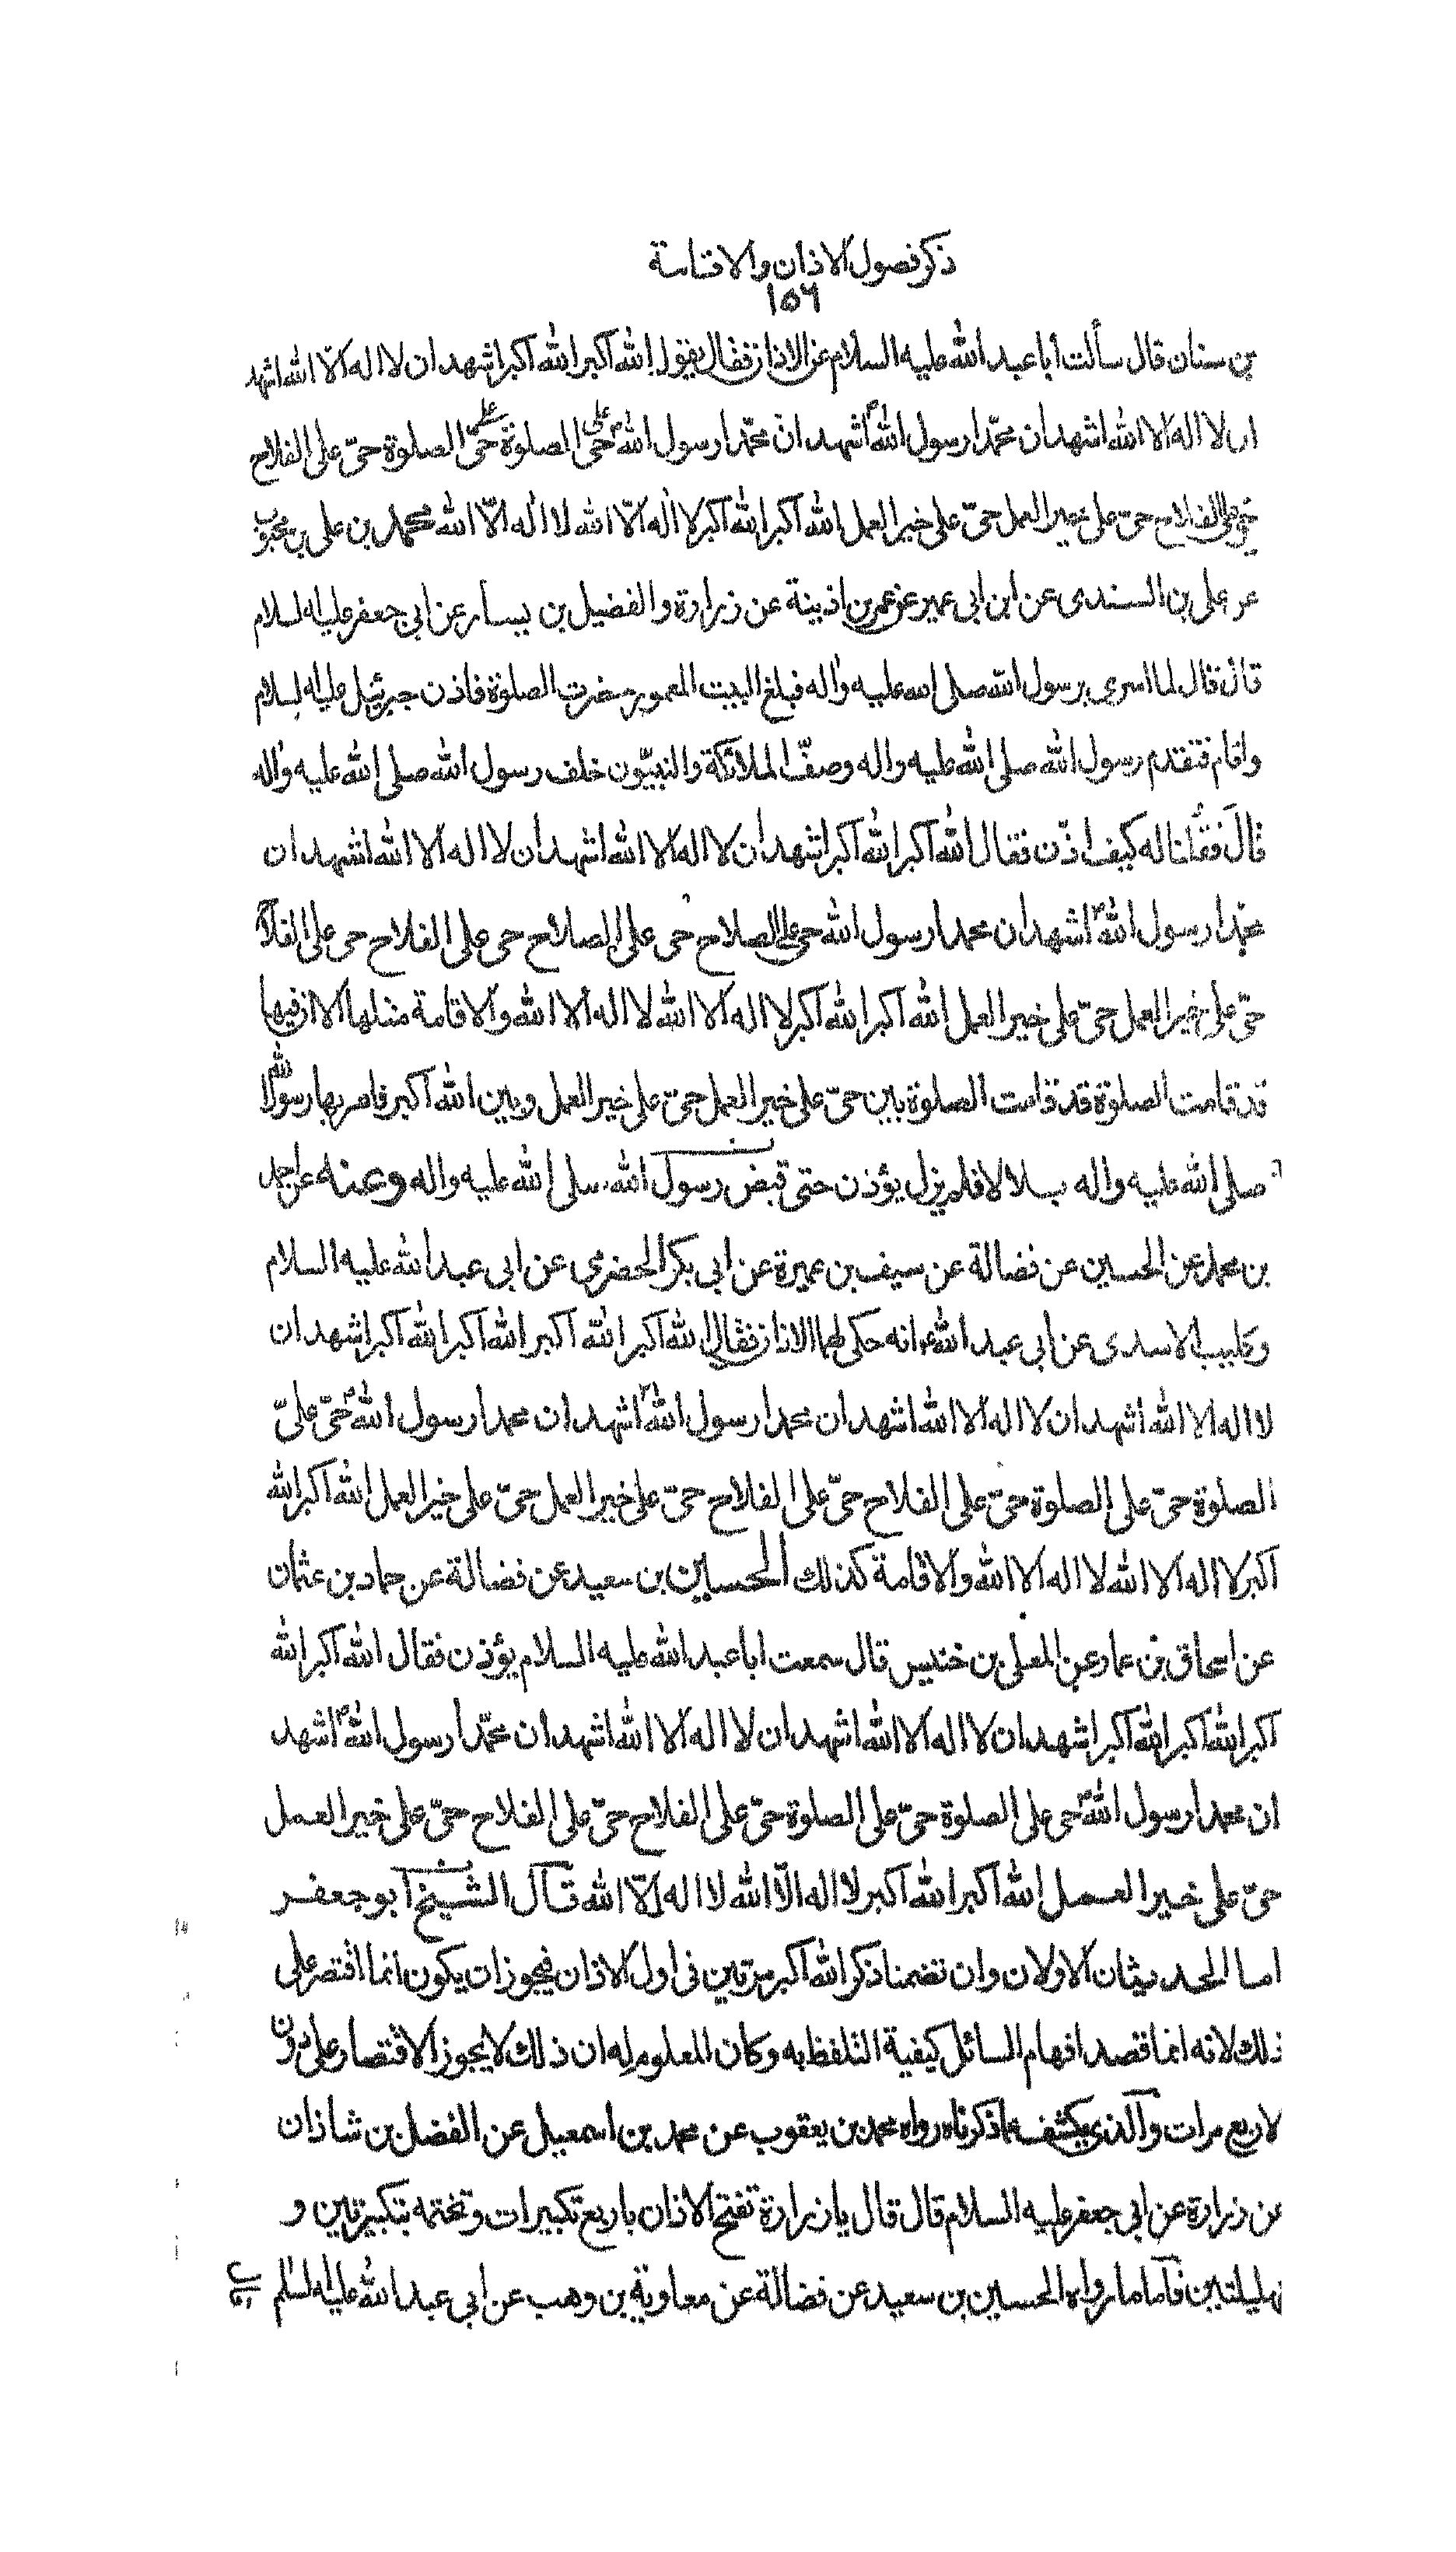 ذكر فصول الاذان والاقامة
١٥٦
بن سنان قال سألت ابا عبد الله عليه السلام عن الاذان فقال يقول الله اكبر الله اكبر اشهد ان لا اله الا الله اشهد
ان لا اله الا الله اشهد ان محمّدا رسول الله اشهد انّ محمّدا رسول الله حى على الصلوة حىّ على الصلوة حىّ على الفلاح
حىّ على الفلاح حىّ على خير العمل حىّ على خير العمل الله اكبر الله اكبر لا اله الّا الله لا اله الّا الله محمد بن على بن محبوب
عن على بن السندى عن ابن ابى عمير عن عمر بن اذينة عن زرارة والفضيل بن يسار عن ابى جعفر عليه السلام
قال قال لما اسرى برسول الله صلى الله عليه واله فبلغ البيت المعمور حضرت الصلوة فاذن جبرئيل عليه السلام
واقام فتقدم رسول الله صلى الله عليه واله وصفّ الملائكة والنبيّون خلف رسول الله صلى الله عليه واله
قال فقلنا له كيف اذّن فقال الله اكبر الله اكبر اشهد ان لا اله الا الله اشهد ان لا اله الا الله اشهد ان
محمّدا رسول الله اشهد ان محمدا رسول الله حى على الصلاح حى على الصلاح حى على الفلاح حى على الفلاح
حىّ على خير العمل حىّ على خير العمل الله اكبر الله اكبر لا اله الا الله لا اله الا الله والاقامة مثلها الا ان فيها
قد قامت الصلوة قد قامت الصلوة بين حىّ على خير العمل حىّ على خير العمل وبين الله اكبر فامر بها رسول الله
صلى الله عليه واله بلالا فلم يزل يؤذن حتى قبض رسول الله صلى الله عليه واله وعنه عن احمد
بن محمد عن الحسين عن فضالة عن سيف بن عميرة عن ابى بكر الحضرمى عن ابى عبد الله عليه السلام
وكليب الاسدى عن ابى عبد الله ع انه حكى لهما الاذان فقال الله اكبر الله اكبر الله اكبر الله اكبر اشهد ان
لا اله الا الله اشهد ان لا اله الا الله اشهد ان محمدا رسول الله اشهد ان محمدا رسول الله حىّ على
الصلوة حىّ على الصلوة حىّ على الفلاح حىّ على الفلاح حىّ على خير العمل حىّ على خير العمل الله اكبر الله
اكبر لا اله الا الله لا اله الا الله والاقامة كذلك الحسين بن سعيد عن فضالة عن حماد بن عثمان
عن اسحاق بن عمار عن المعلى بن خنيس قال سمعت ابا عبد الله عليه السلام يؤذن فقال الله اكبر الله
اكبر الله اكبر الله اكبر اشهد ان لا اله الا الله اشهد ان لا اله الا الله اشهد ان محمّدا رسول الله اشهد
ان محمدا رسول الله حى على الصلوة حىّ على الصلوة حىّ على الفلاح حىّ على الفلاح حىّ على خير العمل
حىّ على خير العمل الله اكبر الله اكبر لا اله الّا الله لا اله الّا الله قال الشيخ ابو جعفر
اما الحديثان الاولان وان تضمنا ذكر الله اكبر مرّتين فى اول الاذان فيجوز ان يكون انما اقتصر على
ذلك لانه انما قصد افهام السائل كيفية التلفظ به وكان المعلوم له ان ذلك لا يجوز الاقتصار على دون
لاربع مرات والذى يكشف عما ذكرناه رواه محمد بن يعقوب عن محمد بن اسمعيل عن الفضل بن شاذان
عن زرارة عن ابى جعفر عليه السلام قال قال يا زرارة تفتح الاذان باربع تكبيرات وتختمه بتكبيرتين و
تهليلتين فاما ما رواه الحسين بن سعيد عن فضالة عن معاوية بن وهب عن ابى عبد الله عليه السلم
قال